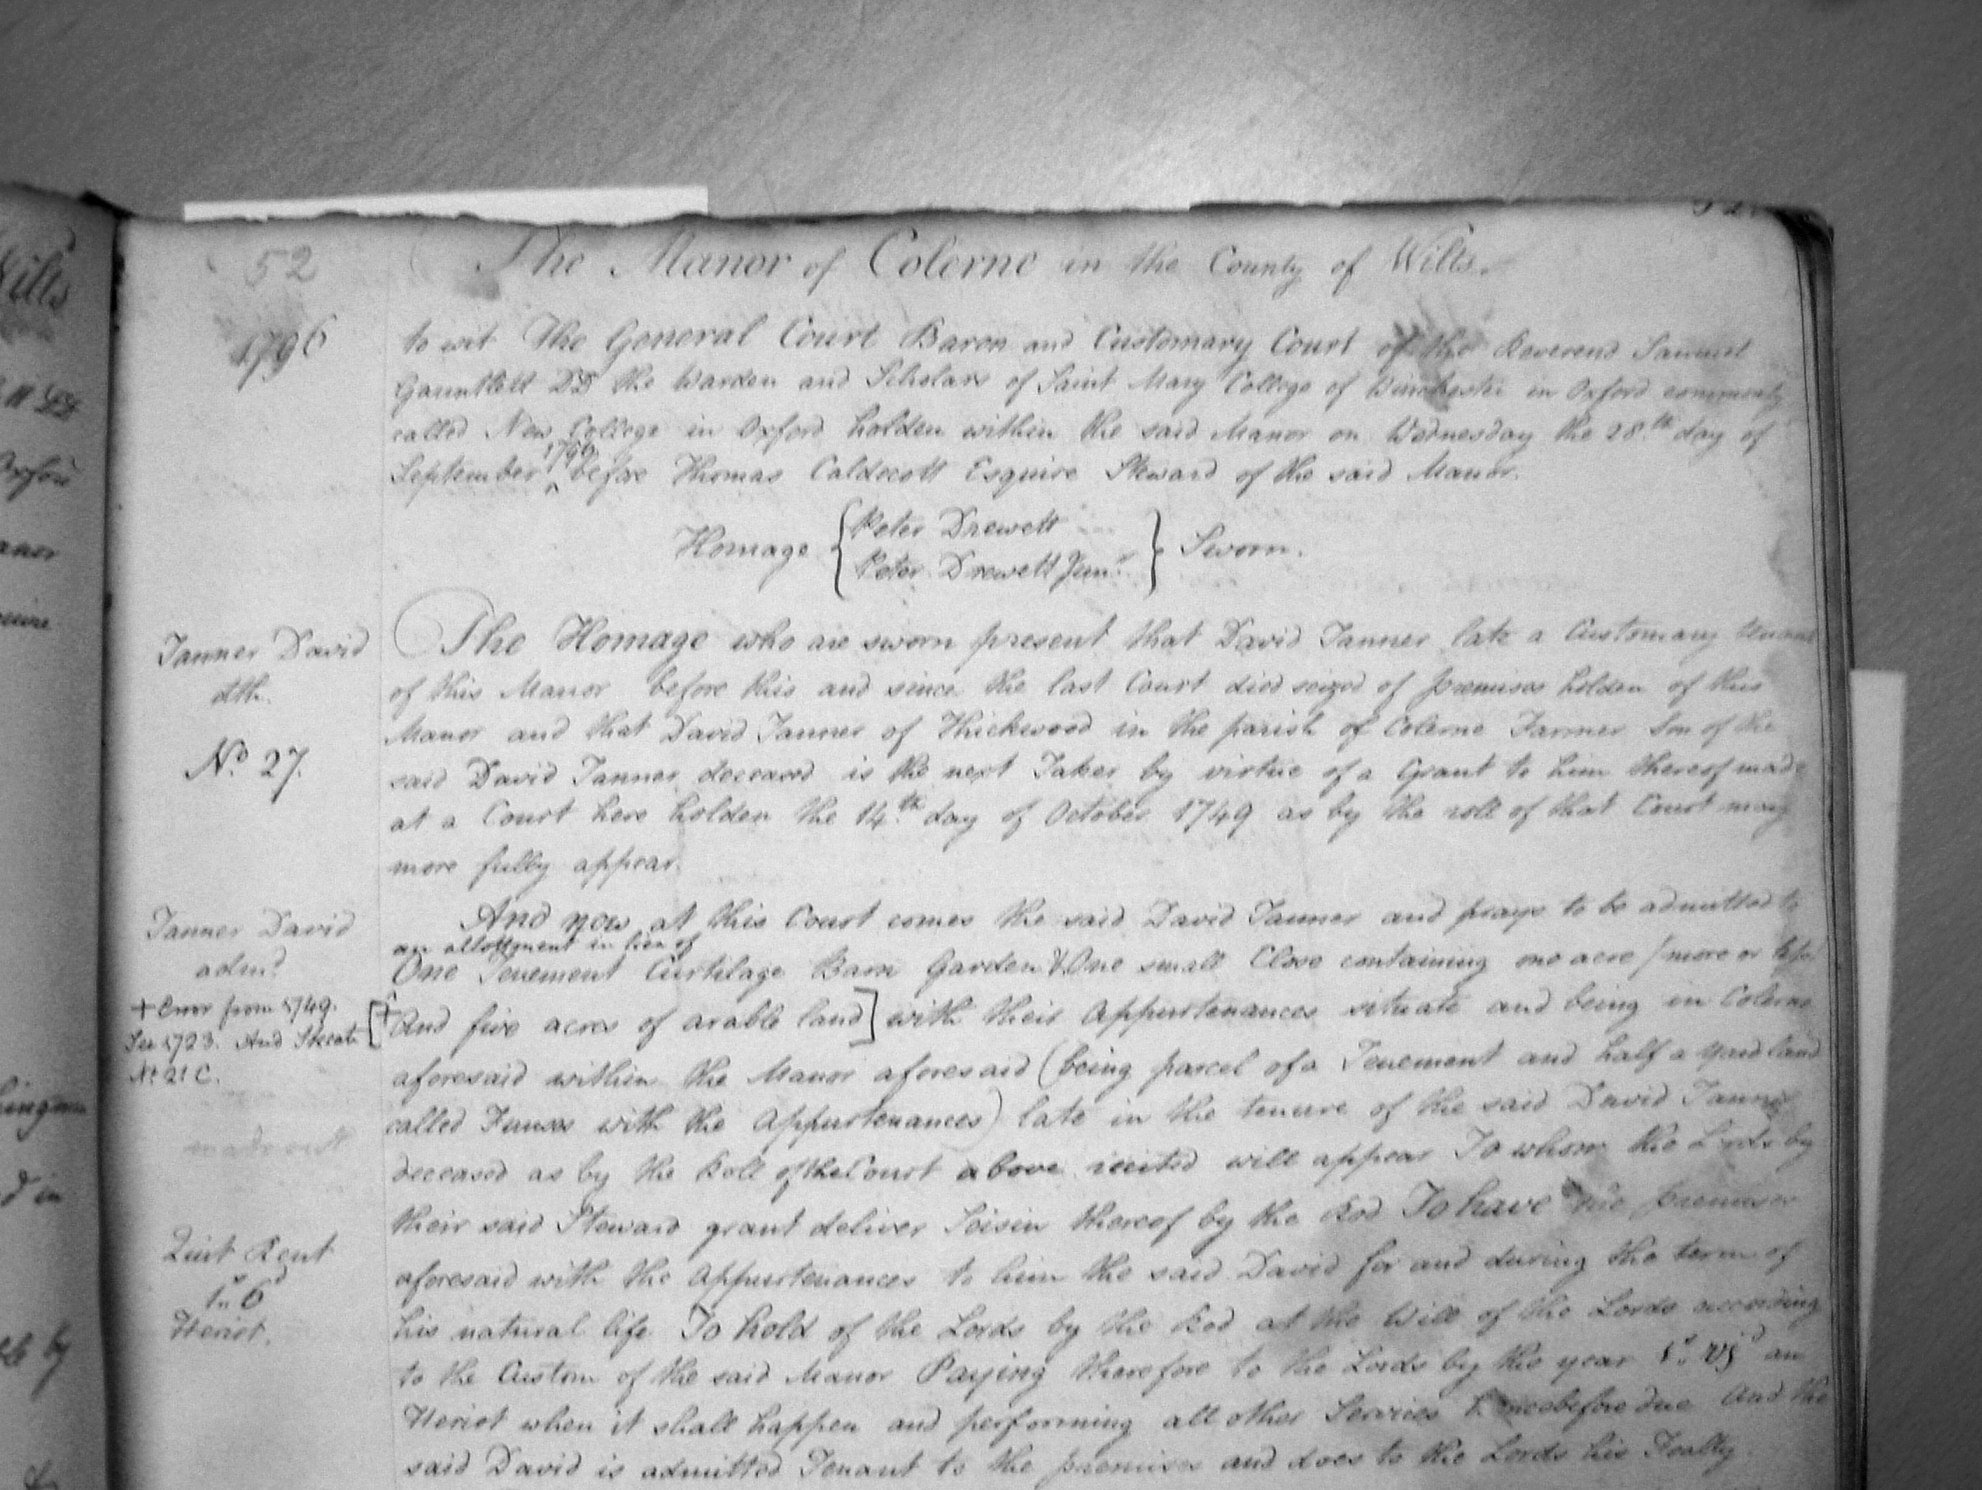 52
The Manor of Colerne in the County of Wilts.
1796
to wit The General Court Baron and Customary Court of the Reverend Samuel
Gauntlett DD the Warden and Scholars of Saint Mary College of Winchester in Oxford commonly
called New College in Oxford holden within the said Manor on Wednesday the 28.th day of
1796
September ^ before Thomas Caldecott Esquire Steward of the said Manor.
Homage { Peter Drewett
Peter Drewett Junr } Sworn.
Tanner David
dth.
No. 27.
The Homage who are sworn present that David Tanner late a Customary tenant
of this Manor before this and since the last Court died seized of premises holden of this
Manor and that David Tanner of Thickwood in the parish of Colerne Farmer Son of the
said David Tanner deceased is the next Taker by virtue of a Grant to him thereof made
at a Court here holden the 14.th day of October 1749 as by the roll of that Court may
more fully appear.
Tanner David
admd.
+ Error from 1749.
See 1723. And
No. 21 C.
And now at this Court comes the said David Tanner and prays to be admitted to
an allottment in lieu of
One Tenement Curtilage Barn Garden & One small Close containing one acre (more or less)
[+ And five acres of arable land] with their Appurtenances situate and being in Colerne
aforesaid within the Manor aforesaid (being parcel of a Tenement and half a yard land
called with the Appurtenances) late in the tenure of the said David Tanner
deceased as by the Roll of the Court above recited will appear To whom the Lords by
their said Steward grant deliver Seisin thereof by the Rod To have the premises
aforesaid with the Appurtenances to him the said David for and during the term of
his natural life To hold of the Lords by the Rod at the Will of the Lords according
to the Custom of the said Manor Paying therefore to the Lords by the year 1s. vjd an
Heriot when it shall happen and performing all other Services before due And the
said David is admitted Tenant to the premises and does to the Lords his Fealty
Quit Rent
1s. 6d
Heriot.